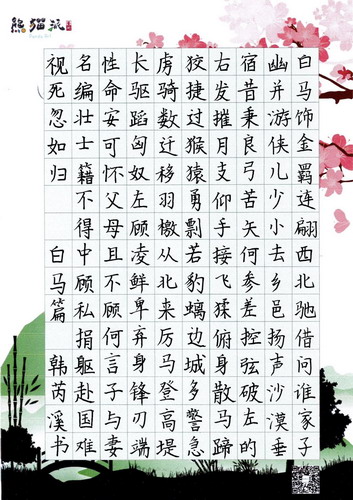 熊猫派
白马饰金羁连翩西北驰借问谁家子
幽并游侠儿少小去乡邑扬声沙漠垂
宿昔秉良弓苦矢何参差控弦破左的
右发摧月支仰手接飞猱俯身散马蹄
狡捷过猴猿勇剽若豹螭边城多警急
虏骑数迁移羽檄从北来厉马登高堤
长驱蹈匈奴左顾凌鲜卑弃身锋刃端
性命安可怀父母且不顾何言子与妻
名编壮士籍不得中顾私捐躯赴国难
视死忽如归 白马篇 韩芮溪书